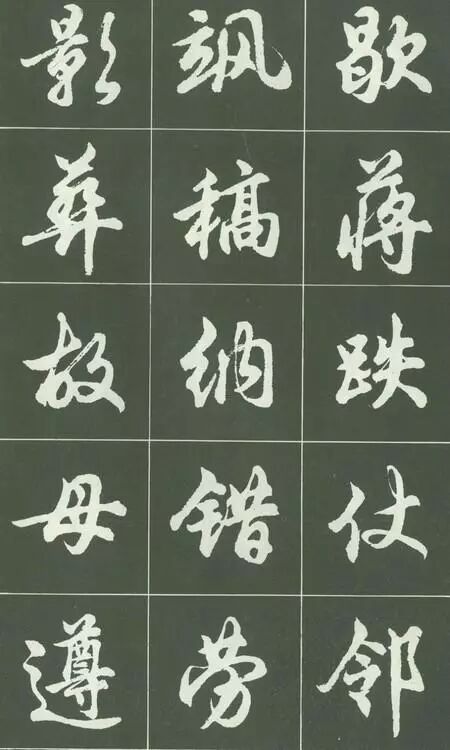 歇蒋跌仗邻
飒稿纳错劳
影葬故母遵